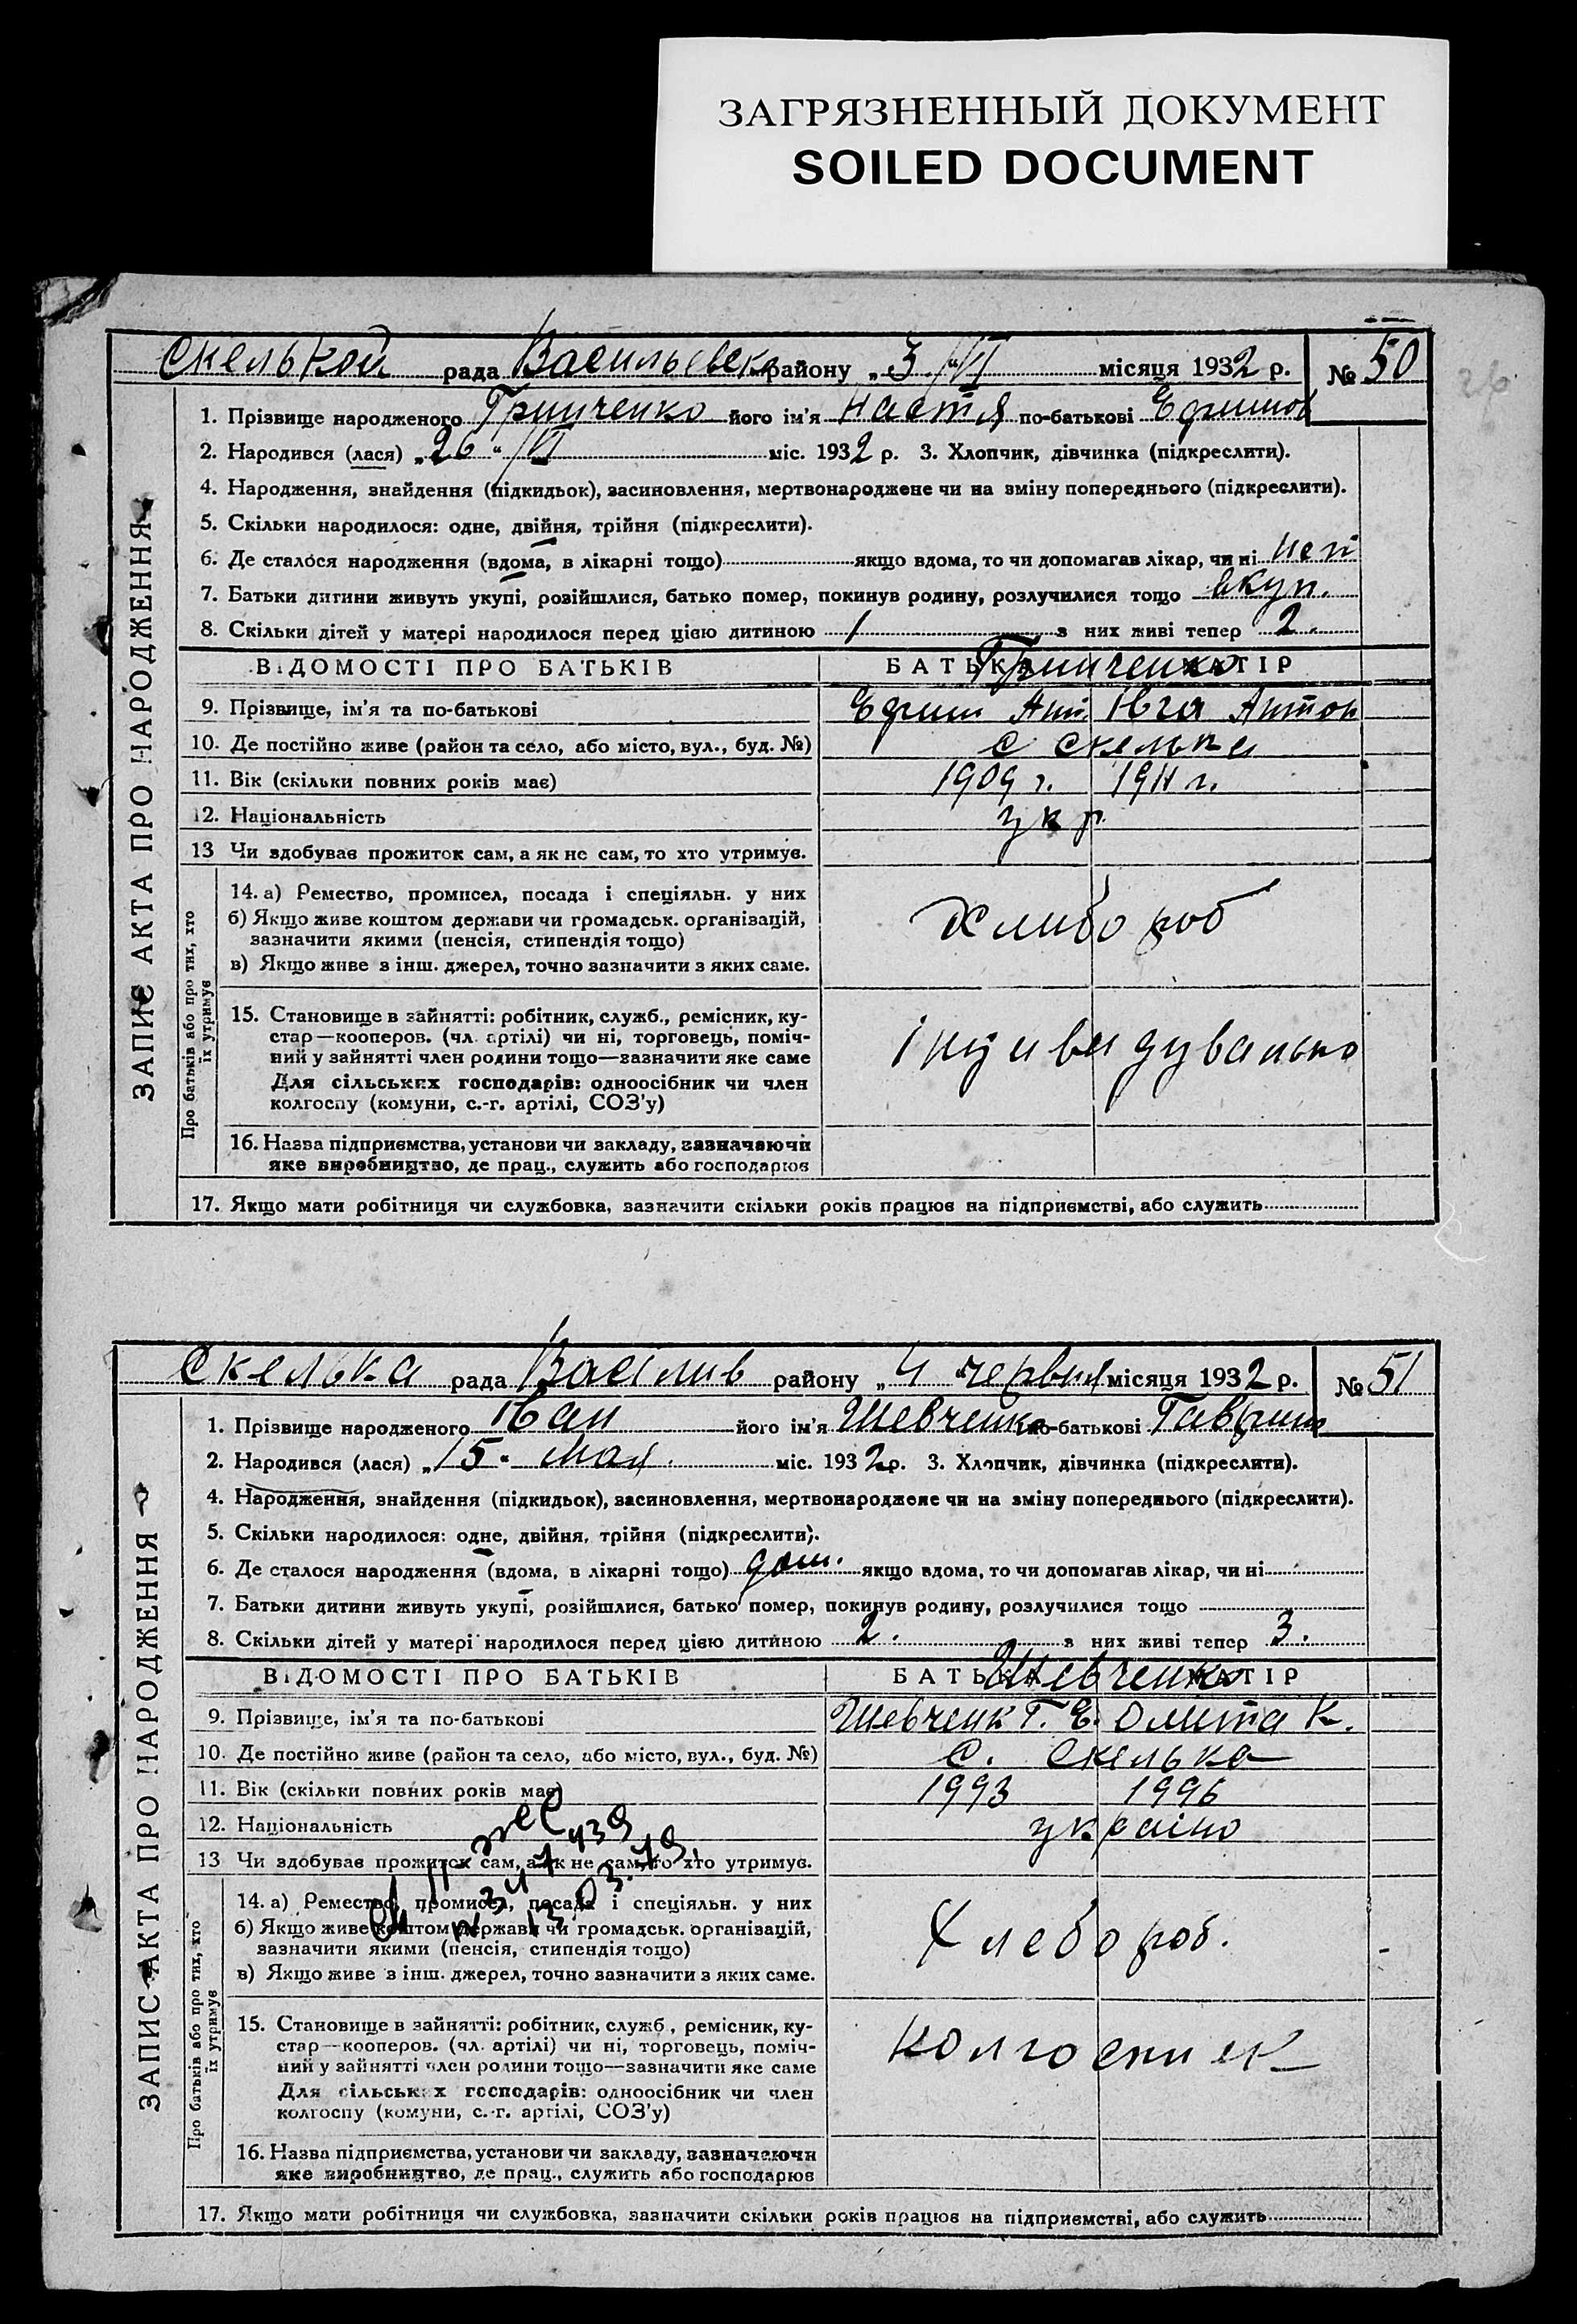 ЗАГРЯЗНЕННЫЙ ДОКУМЕНТ
SOILED DOCUMENT
Скелькой рада Васильевск району „3“/VI місяця 1932 р. № 50
ЗАПИС АКТА ПРО НАРОДЖЕННЯ
1. Прізвище народженого Гринченко його ім'я Настя по-батькові Ефимов
2. Народився (лася) „26“/VI міс. 1932 р. 3. Хлопчик, дівчинка (підкреслити).
4. Народження, знайдення (підкидьок), засиновлення, мертвонароджене чи на зміну попереднього (підкреслити).
5. Скільки народилося: одне, двійня, трійня (підкреслити).
6. Де сталося народження (вдома, в лікарні тощо) якщо вдома, то чи допомагав лікар, чи ні нет
7. Батьки дитини живуть укупі, розійшлися, батько помер, покинув родину, розлучилися тощо вкуп.
8. Скільки дітей у матері народилося перед цією дитиною 1 з них живі тепер 2.
ВІДОМОСТІ ПРО БАТЬКІВ БАТЬКО Гринченко МАТІР
9. Прізвище, ім'я та по-батькові Ефим Ант. Івга Антон
10. Де постійно живе (район та село, або місто, вул., буд. №) с Скельки
11. Вік (скільки повних років має) 1909 г. 1911 г.
12. Національність укр.
13 Чи здобував прожиток сам, а як не сам, то хто утримує.
Про батьків або про тих, хто їх утримує
14. а) Ремество, промисел, посада і спеціяльн. у них
б) Якщо живе коштом держави чи громадськ. організацій,
зазначити якими (пенсія, стипендія тощо)
Хлибороб
в) Якщо живе з інш. джерел, точно зазначити з яких саме.
15. Становище в зайнятті: робітник, служб., ремісник, ку-
стар—кооперов. (чл. артілі) чи ні, торговець, поміч-
ний у зайнятті член родини тощо—зазначити яке саме
Індивидувально
Для сільських господарів: одноосібник чи член
колгоспу (комуни, с.-г. артілі, СОЗ'у)
16. Назва підприємства, установи чи закладу, зазначаючи
яке виробництво, де прац., служить або господарює
17. Якщо мати робітниця чи службовка, зазначити скільки років працює на підприємстві, або служить
Скелька рада Васілив району „4“ червня місяця 1932 р. № 51
ЗАПИС АКТА ПРО НАРОДЖЕННЯ
1. Прізвище народженого Іван його ім'я Шевченко по-батькові Гаврил
2. Народився (лася) „15“ мая міс. 1932 р. 3. Хлопчик, дівчинка (підкреслити).
4. Народження, знайдення (підкидьок), засиновлення, мертвонароджене чи на зміну попереднього (підкреслити).
5. Скільки народилося: одне, двійня, трійня (підкреслити).
6. Де сталося народження (вдома, в лікарні тощо) дом. якщо вдома, то чи допомагав лікар, чи ні
7. Батьки дитини живуть укупі, розійшлися, батько помер, покинув родину, розлучилися тощо
8. Скільки дітей у матері народилося перед цією дитиною 2. з них живі тепер 3.
ВІДОМОСТІ ПРО БАТЬКІВ БАТЬКО Шевченко МАТІР
9. Прізвище, ім'я та по-батькові Шевченк Г. Е. К.
10. Де постійно живе (район та село, або місто, вул., буд. №) с. Скелька
11. Вік (скільки повних років має) 1993 1996
12. Національність украіно
13 Чи здобував прожиток сам, а як не сам, то хто утримує.
Про батьків або про тих, хто їх утримує
14. а) Ремество, промисел, посада і спеціяльн. у них
б) Якщо живе коштом держави чи громадськ. організацій,
зазначити якими (пенсія, стипендія тощо)
Хлебороб.
в) Якщо живе з інш. джерел, точно зазначити з яких саме.
15. Становище в зайнятті: робітник, служб., ремісник, ку-
стар—кооперов. (чл. артілі) чи ні, торговець, поміч-
ний у зайнятті член родини тощо—зазначити яке саме
колгоспнік
Для сільських господарів: одноосібник чи член
колгоспу (комуни, с.-г. артілі, СОЗ'у)
16. Назва підприємства, установи чи закладу, зазначаючи
яке виробництво, де прац., служить або господарює
17. Якщо мати робітниця чи службовка, зазначити скільки років працює на підприємстві, або служить